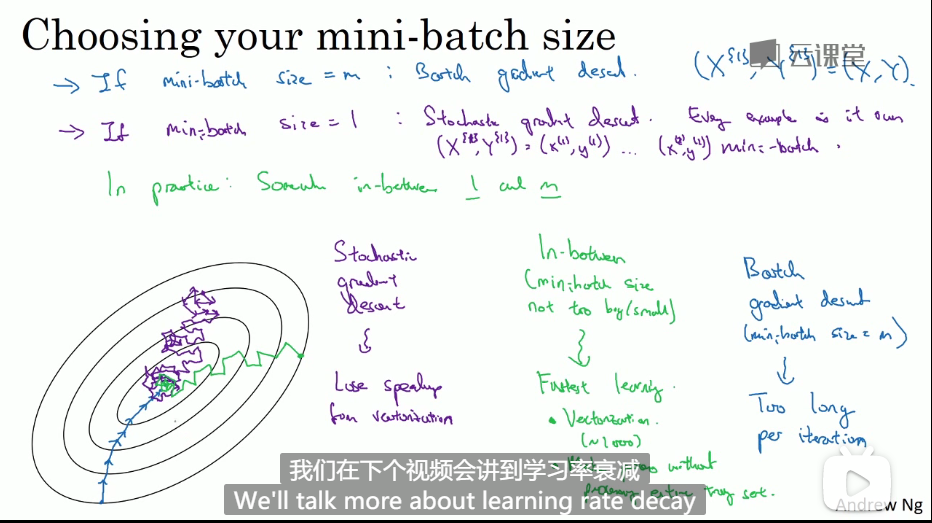 Choosing your mini-batch size
云课堂
→ If mini-batch size = m : Batch gradient descent. (X^{1}, Y^{1}) = (X, Y).
→ If mini-batch size = 1 : Stochastic gradient descent. Every example is it own
(X^{1}, Y^{1}) = (x^(1), y^(1)) ... mini-batch.
In practice: Somewhere in-between 1 and m
Stochastic
gradient
descent
Lose speedup
from vectorization
In-between
(mini-batch size
not too big/small)
Fastest learning.
• Vectorization.
(~1000)
without
processing entire training set.
Batch
gradient descent
(mini-batch size = m)
Too long
per iteration
我们在下个视频会讲到学习率衰减
We'll talk more about learning rate decay
Andrew Ng